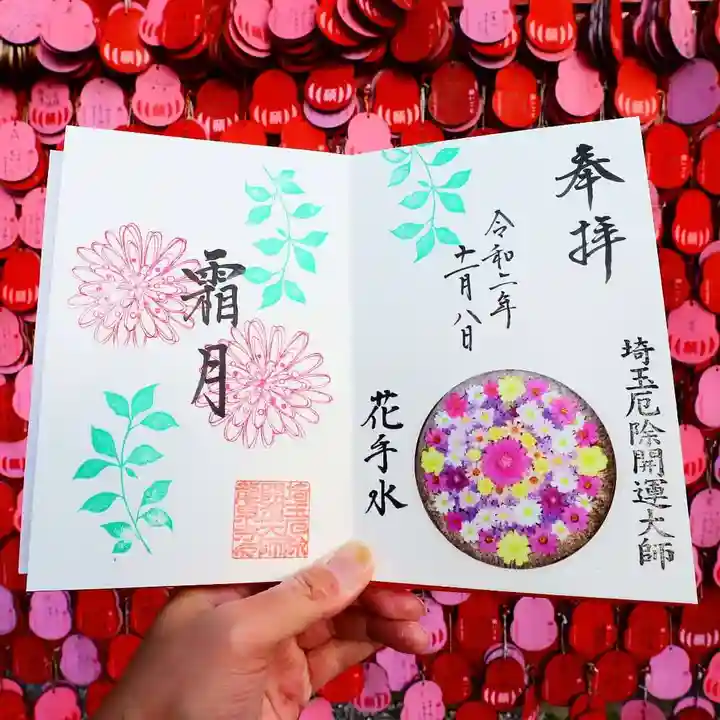 奉拝
令和二年
十一月八日
埼玉厄除開運大師
花手水
霜月
願